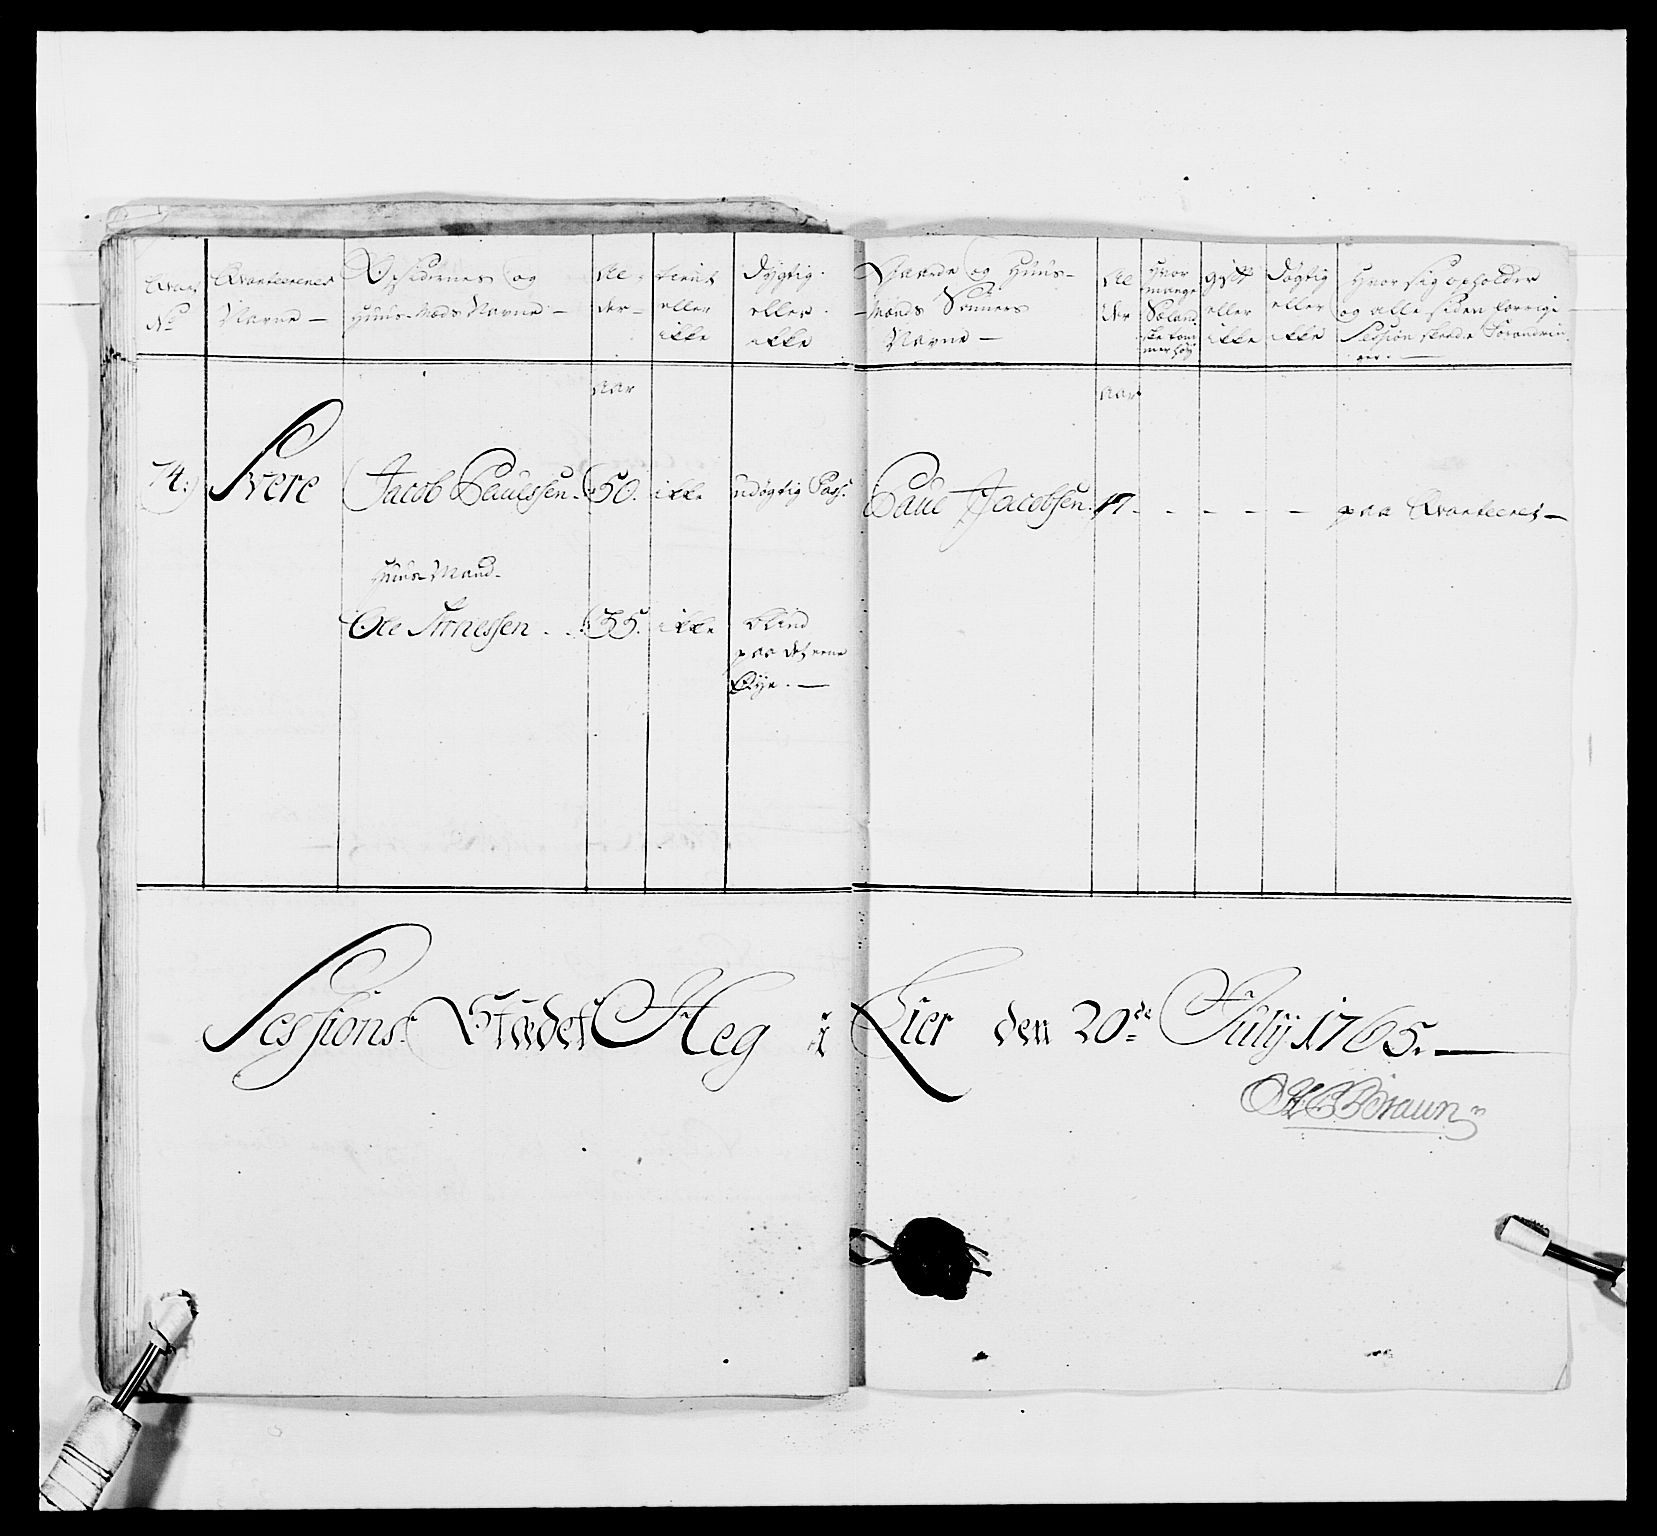 Qvart: No
Qvarteerenes Navne —
Opsidernes og Huus-Mænds Navne —
Al-der-
tient eller ikke
dygtig eller ikke
Gaarde og Huus-Mænds Sønners Navne —
Al der
Hvor mange
gift eller ikke
døgtig eller ikke
Hvor sig opholder og alle siden forrige Session skeede Forandringer. —
aar
aar
74:
Svere
Jacob Paulssen. 50. ikke udøgtig
Paul Jacobsen. 17 - - - - - paa Qvarteeret —
Huus-Mand-
Ole 35. ikke blind
paa det eene
Øye. —
Sessions Stædet Heg i Lier den 20de Julij 1765. —
Braun